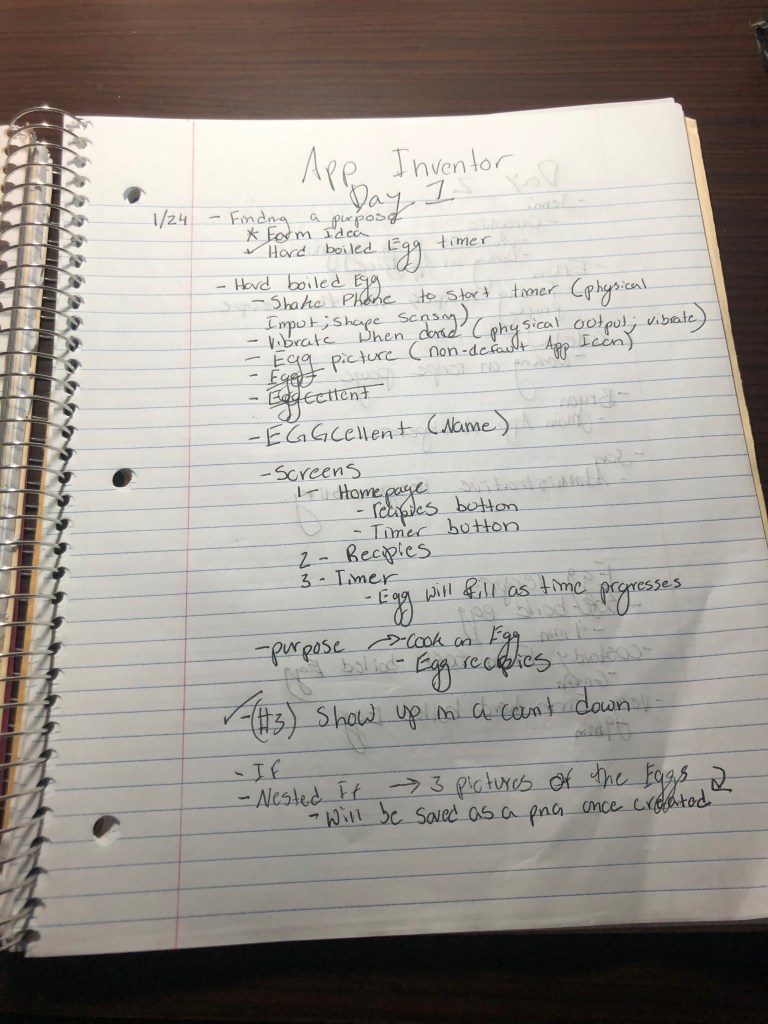 App Inventor
Day 1
1/24 - Finding a purpose
* Form Idea
✓ Hard boiled Egg timer
- Hard boiled Egg
- Shake Phone to start timer (physical
Input; shape sensng)
- vibrate when done (physical output; vibrate)
- Egg picture (non-default App Icon)
- Eggs
- Eggcellent
- EGGCellent (Name)
- Screens
1 - Homepage
- recipies button
- Timer button
2 - Recipies
3 - Timer
- Egg will fill as time prgresses
- purpose → - cook an Egg
- Egg recipies
✓ - (#3) Show up in a count down
- If
- Nested If → 3 pictures of the Eggs
- Will be saved as a png once created